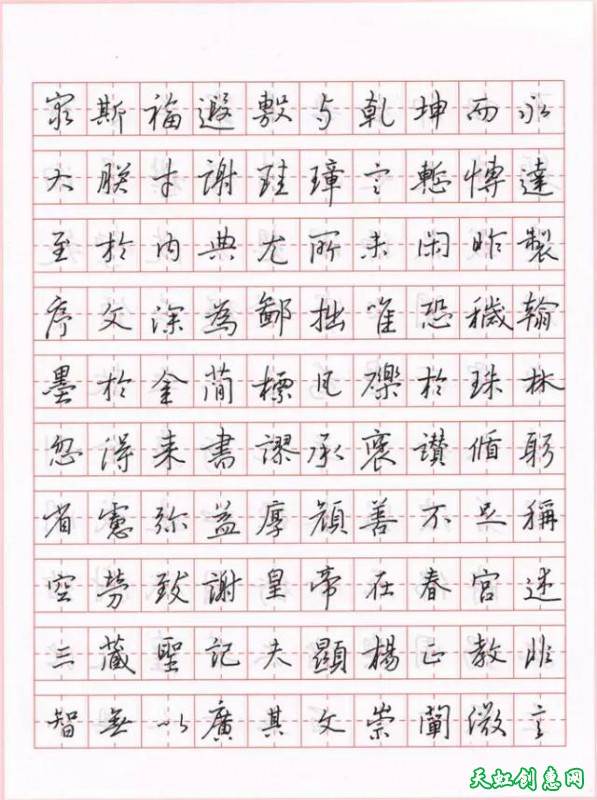 冞斯福遐敷与乾坤而永
大朕才謝珪璋言慙博達
至於內典尤所未閑昨製
序文深為鄙拙唯恐穢翰
墨於金簡標瓦礫於珠林
忽得来書謬承褒讚循躬
省慮弥益厚顔善不足稱
空勞致謝皇帝在春宮述
三藏聖記夫顯楊正教非
智無以廣其文崇闡微言
天虹创意网